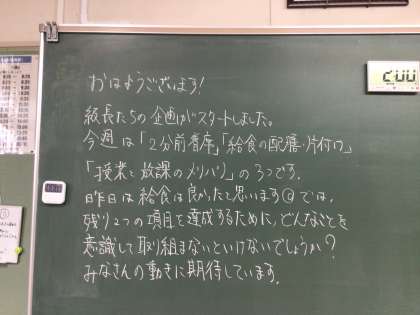 おはようございます!
級長たちの企画がスタートしました。
今週は「2分前着席」「給食の配膳・片付け」
「授業と放課のメリハリ」の3つです。
昨日は給食は良かったと思います では、
残り2つの項目を達成するために、どんなことを
意識して取り組まないといけないでしょうか?
みなさんの動きに期待しています。